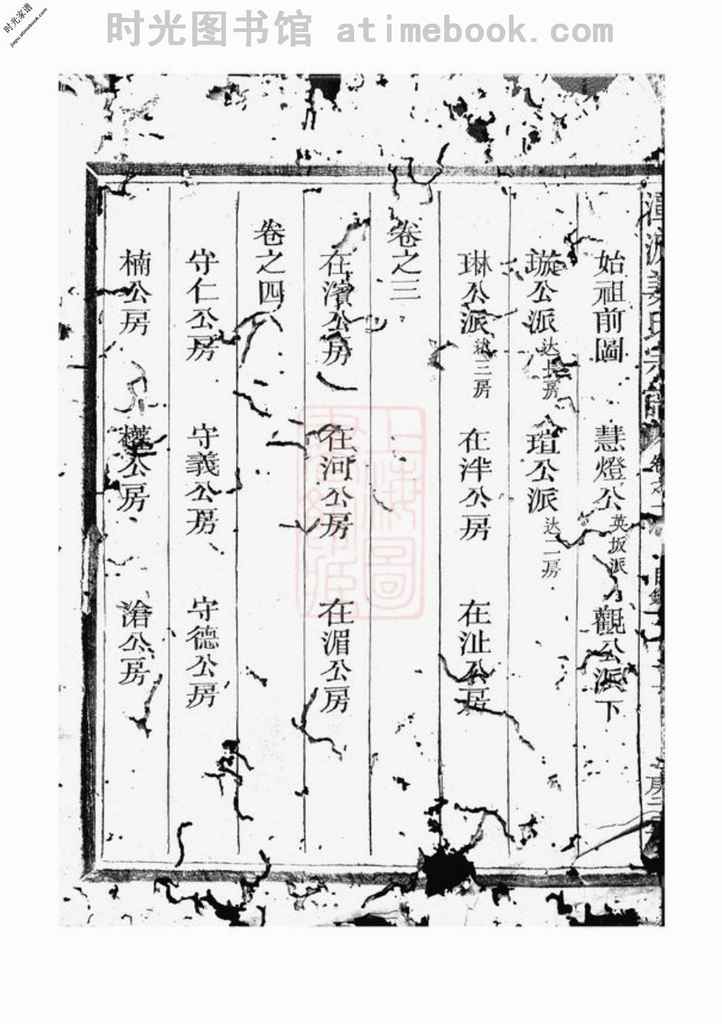 时光图书馆 atimebook.com
时光家谱
始祖前圖 慧燈公英坂派 觀公派下
璇公派达七房 瑄公派达二房
琳公派三房 在泮公房 在沚公房
卷之三
在濱公房 在河公房 在湄公房
卷之四
守仁公房 守義公房 守德公房
楠公房 公房 滄公房